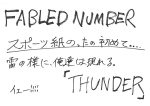 FABLED NUMBER
スポーツ紙の、たの初めて....
雷の様に、俺達は現れる。
「THUNDER」
イェー!!!!